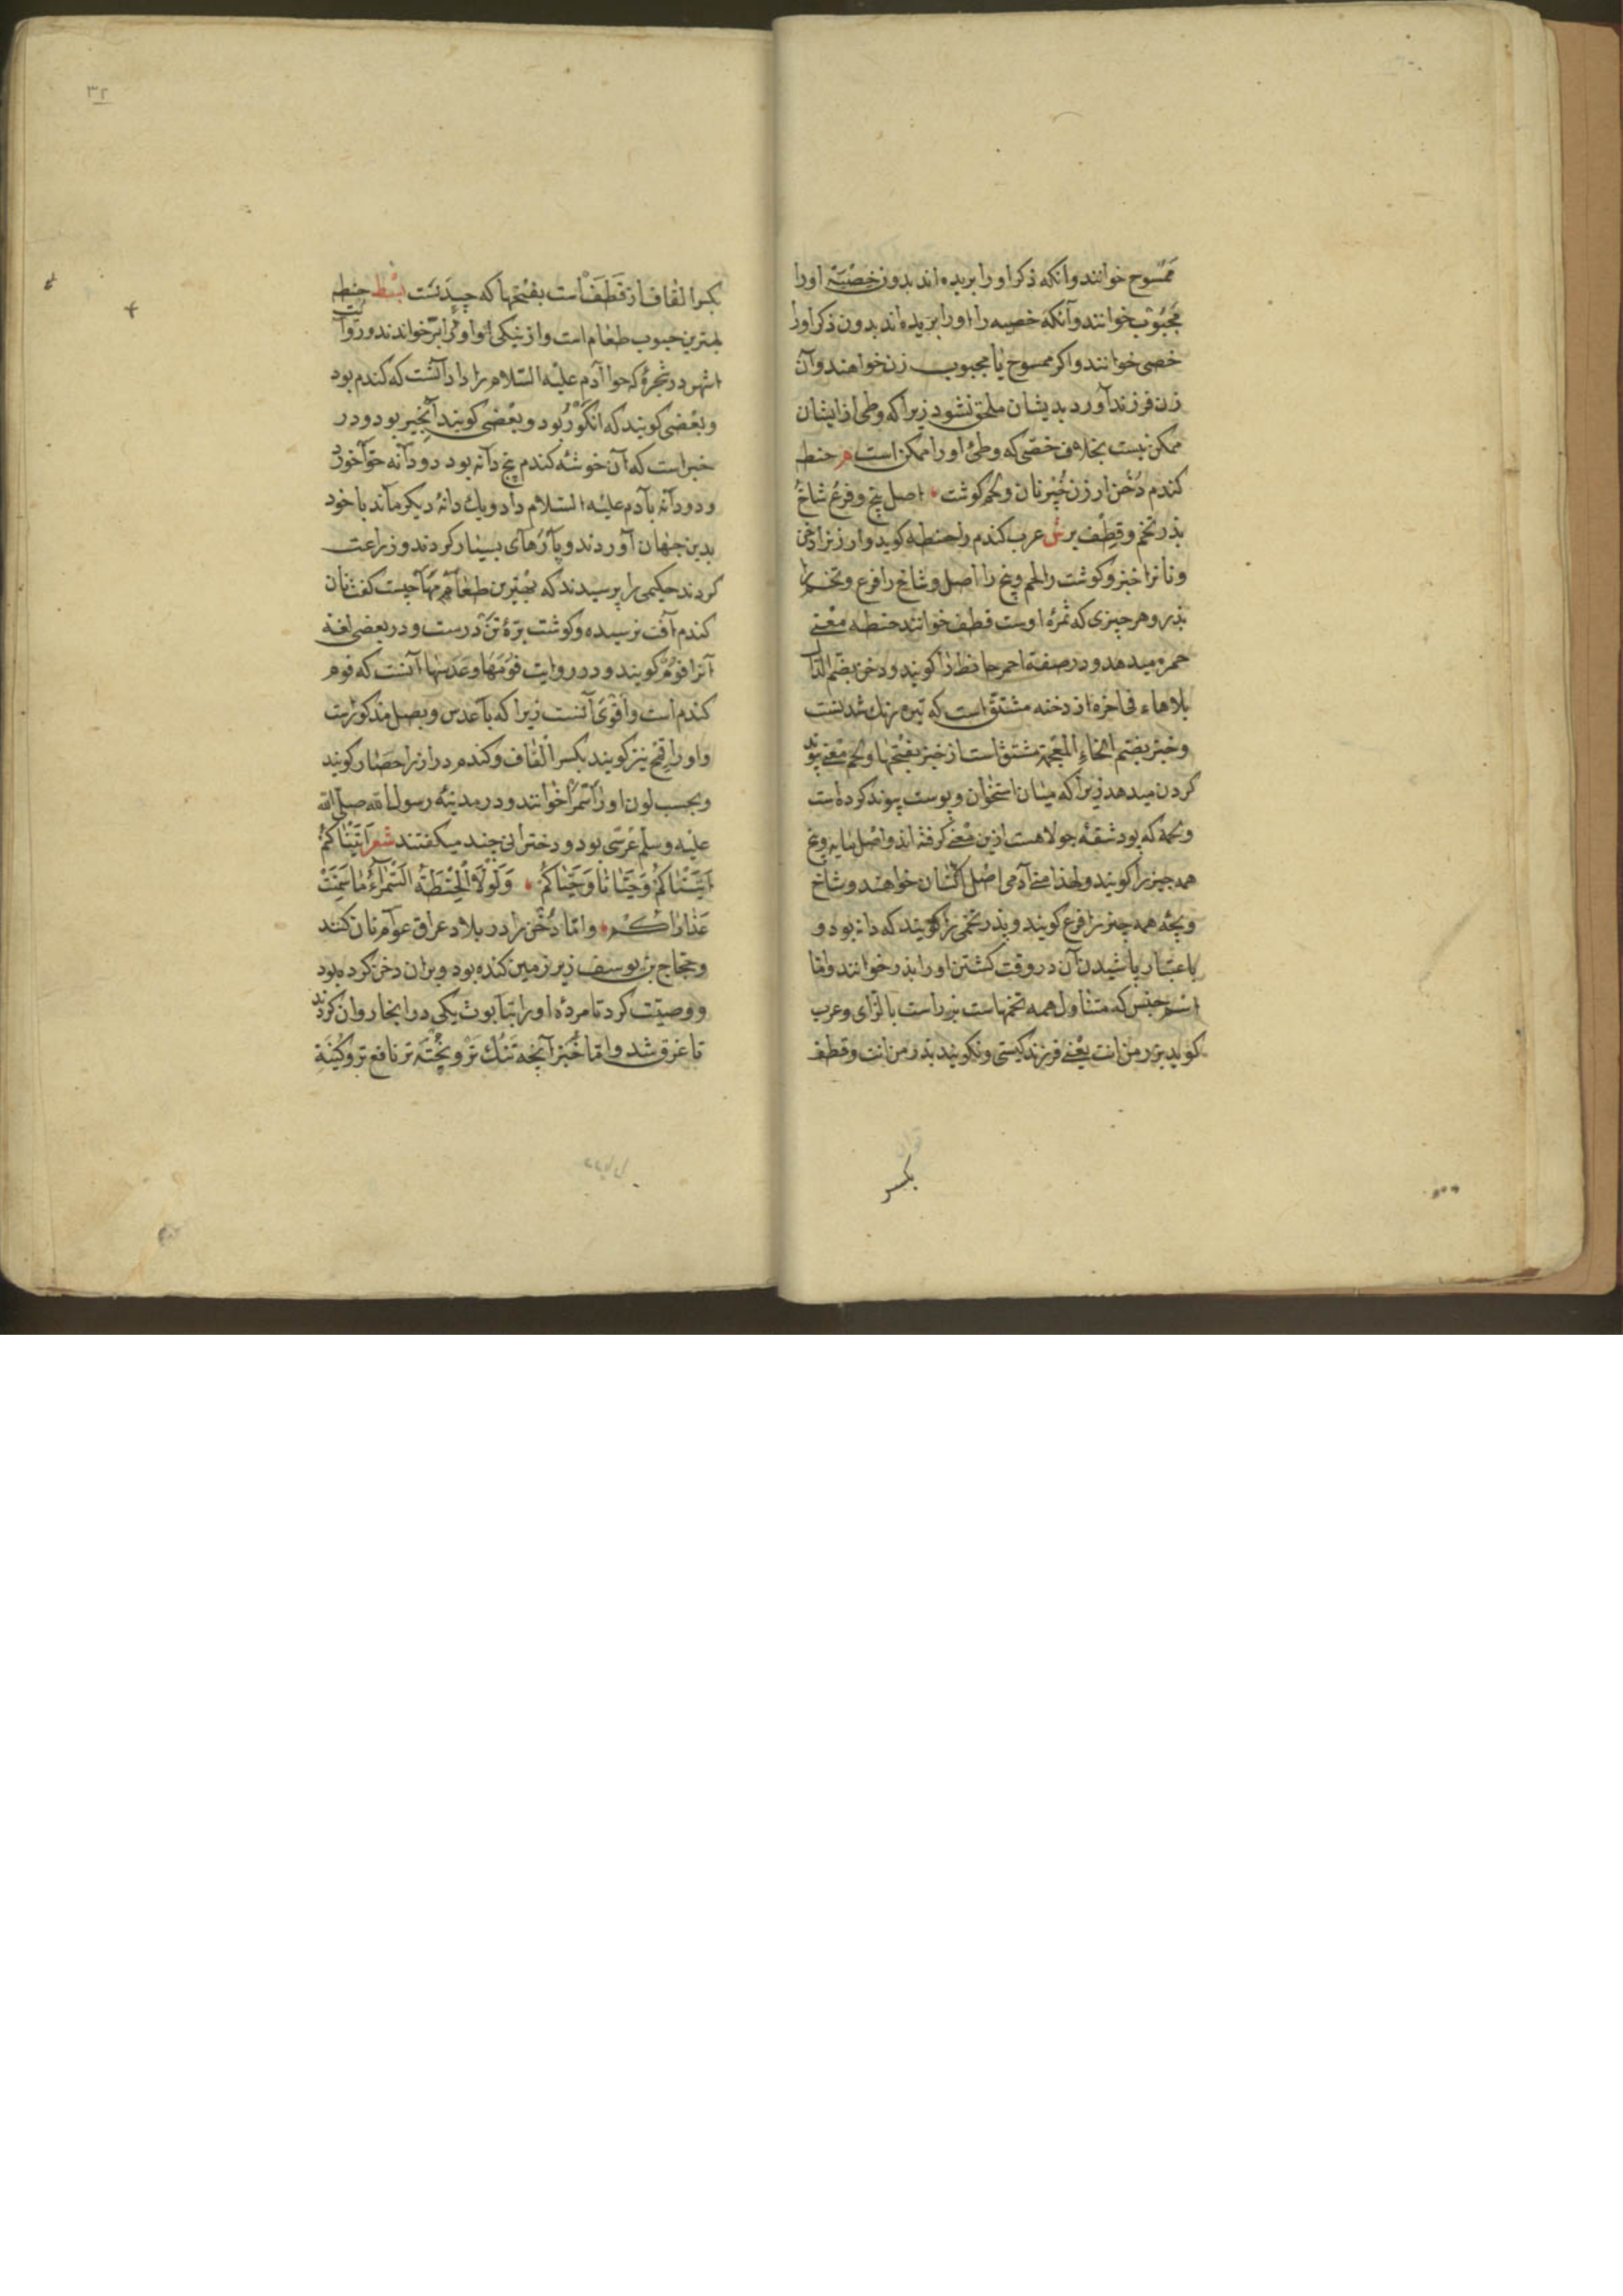 ممسوح خوانند وانکه ذکر او را بریده اند بدون خصیتہ اورا
مجبوب خوانند وآنکه خصیه را اورا بریده اند بدون ذکر اورا
خصی خوانند واکر ممسوح یا مجبوب زن خواهند وآن
زن فرزند آورد بدیشان ملحق نشود زیراکه وطی ازایشان
ممکن نیست بخلاف خصّی که وطئ اورا ممکن است م حنطه
کندم دُخن ارزن خُبز نان ولحم کوشت اصل بیخ وفرع شاخ
بذر تخم وقِطف بر ش عرب کندم را حنطه کوید وارزنرا دخن
ونانرا خبز وکوشت را لحم وبیخ را اصل وشاخ را فرع وتخم را
بذر وهر چیزی که ثمرۀ اوست قطف خوانند حنطه معنی
حمره میدهد ودر صفة احمر حانط را کویند ودخن بضّم الدّال
بلاهاء فی اخره از دخنه مشتقّ است که تیره رنك شدنست
وخبز بضّم الخاءِ المعجمة مشتق است از خبز بفتحها ولحم معنی پیوند
کردن میدهد زیراکه میان استخوان وپوست پیوند کرده است
ولحمه که پود شقۀ جولاهست ازین معنی کرفته اند واصل پایه وبیخ
همه چیز را کویند ولهذا منی آدمی اصل انسان خواهند وشاخ
وبچۀ همه چیز را فرع کویند وبذر تخمی را کویند که دانه بود و
باعتبار پاشیدن آن در وقت کشتن اورا بذر خوانند واما
اسم جنس که متناول همه تخمهاست بزر است بالزای وعرب
کوید بزر من انت یعنی فرزند کیستی ونکویند بذر من انت وقطف
بکسر
٣٢
بکسر القاف از قَطَفَ است بفتحها که چیدنست بسط حنطه
بهترین حبوب طعام است واز نیکی او اورا برّ خوانند ودر روایت
اشهر در شجرۀ که حوا آدم علیه السّلام را داد آنست که کندم بود
وبعضی کویند که انکور بود وبعضی کویند انجیر بود ودر
خبر است که آن خوشۀ کندم پنج دانه بود دو دانه حوّا خورد
ودو دانه بآدم علیه السلام داد ویك دانۀ دیکر ماند با خود
بدین جهان آوردند وپارهای بسیار کردند وزراعت
کردند حکیمی را پرسیدند که بهترین طعامها چیست کفت نان
کندم آفت نرسیده وکوشت برّۀ تن درست ودر بعضی لغة
آنرا فوم کویند ودر روایت فُومها وعدسها آنست که فوم
کندم است واقوی آنست زیرا که با عدس وبصل مذکور است
واورا قمح نیز کویند بکسر القاف وکندم درازرا حصار کویند
وبحسب لون اورا سمرا خوانند ودر مدینۀ رسول الله صلی الله
علیه وسلم عرسی بود ودخترانی چند میکفتند شعر اَتَیْناکُمْ
اَتَیْناکُمْ وَحَیّانا وَحَیّاکُمْ وَلَوْلَا الْحِنْطَةُ السَّمْرَآءُ مَا سَمِنَتْ
عَذاراکُم وامّا دُخن را در بلاد عراق عوام نان کنند
وحجاج بن یوسف زیر زمین کنده بود وبران دخن کرده بود
ووصیّت کرد تا مردۀ اورا بتابوت یکی در انجا روان کردند
تا غرق شد وامّا خُبز آنچه تنك تر وپخته تر نافع تر وکینَةِ